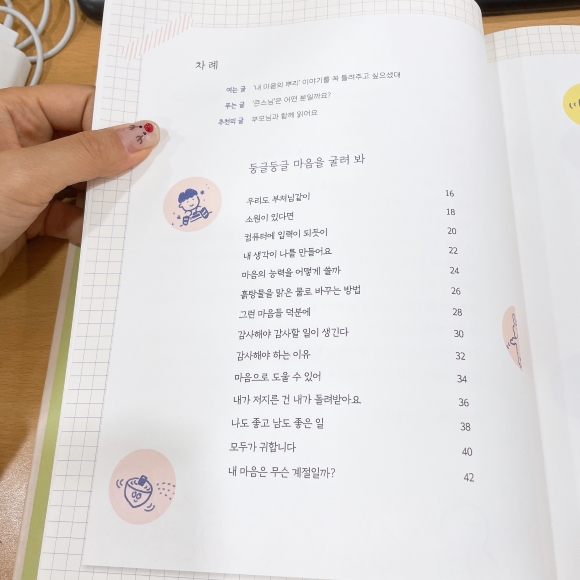 차례
여는 글 '내 마음의 뿌리' 이야기를 꼭 들려주고 싶으셨대
루는 글 '큰스님'은 어떤 분일까요?
추천의 글 부모님과 함께 읽어요
둥글둥글 마음을 굴려 봐
우리도 부처님같이 16
소원이 있다면 18
컴퓨터에 입력이 되듯이 20
내 생각이 나를 만들어요 22
마음의 능력을 어떻게 쓸까 24
흙탕물을 맑은 물로 바꾸는 방법 26
그런 마음들 덕분에 28
감사해야 감사할 일이 생긴다 30
감사해야 하는 이유 32
마음으로 도울 수 있어 34
내가 저지른 건 내가 돌려받아요 36
나도 좋고 남도 좋은 일 38
모두가 귀합니다 40
내 마음은 무슨 계절일까? 42